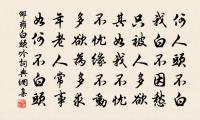 何人頭不白
我白不因愁
只被人多欲
其如我不忧
不忧緣不動
多欲為多求
年老人常事
如何不白頭
邵雍白頭吟詞典網集